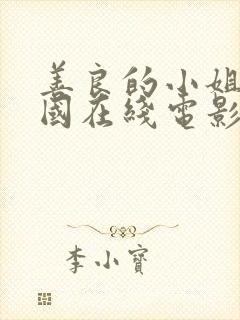 善良的小姐
國在綫電影
李小寶